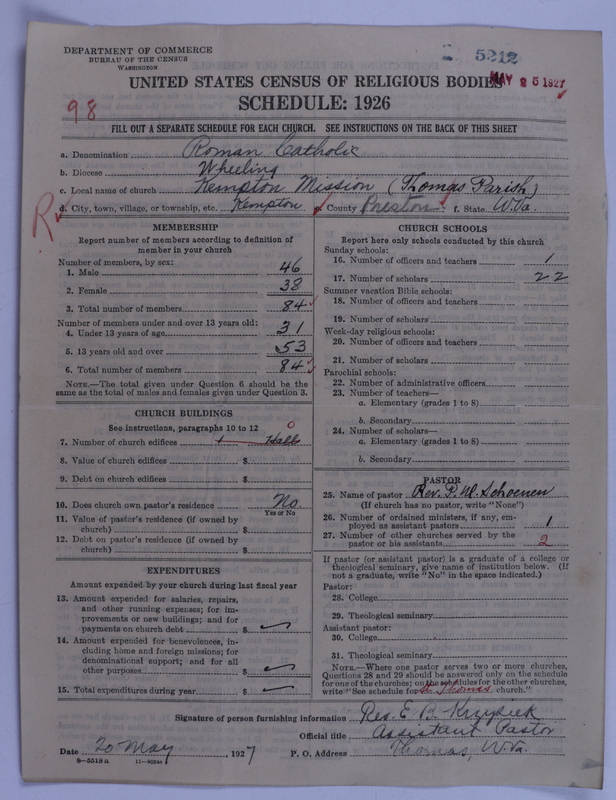 DEPARTMENT OF COMMERCE
BUREAU OF THE CENSUS
WASHINGTON
5212
MAY 25 1927
UNITED STATES CENSUS OF RELIGIOUS BODIES
SCHEDULE: 1926
98
FILL OUT A SEPARATE SCHEDULE FOR EACH CHURCH. SEE INSTRUCTIONS ON THE BACK OF THIS SHEET
a. Denomination Roman Catholic
b. Diocese Wheeling
c. Local name of church Kempton Mission (Thomas Parish)
R d. City, town, village, or township, etc. Kempton e. County Preston f. State W.Va.
MEMBERSHIP
Report number of members according to definition of
member in your church
Number of members, by sex:
1. Male 46
2. Female 38
3. Total number of members 84
Number of members under and over 13 years old:
4. Under 13 years of age 31
5. 13 years old and over 53
6. Total number of members 84
NOTE.—The total given under Question 6 should be the
same as the total of males and females given under Question 3.
CHURCH BUILDINGS
See instructions, paragraphs 10 to 12
7. Number of church edifices 1 Hall 0
8. Value of church edifices $
9. Debt on church edifices $
10. Does church own pastor's residence No
Yes or No
11. Value of pastor's residence (if owned by
church) $
12. Debt on pastor's residence (if owned by
church) $
EXPENDITURES
Amount expended by your church during last fiscal year
13. Amount expended for salaries, repairs,
and other running expenses; for im-
provements or new buildings; and for
payments on church debt $
14. Amount expended for benevolences, in-
cluding home and foreign missions; for
denominational support; and for all
other purposes $
15. Total expenditures during year $
CHURCH SCHOOLS
Report here only schools conducted by this church
Sunday schools:
16. Number of officers and teachers 1
17. Number of scholars 22
Summer vacation Bible schools:
18. Number of officers and teachers
19. Number of scholars
Week-day religious schools:
20. Number of officers and teachers
21. Number of scholars
Parochial schools:
22. Number of administrative officers
23. Number of teachers—
a. Elementary (grades 1 to 8)
b. Secondary
24. Number of scholars—
a. Elementary (grades 1 to 8)
b. Secondary
PASTOR
25. Name of pastor Rev. P. M. Schoenen
(If church has no pastor, write "None")
26. Number of ordained ministers, if any, em-
ployed as assistant pastors 1
27. Number of other churches served by the
pastor or his assistants 2
If pastor (or assistant pastor) is a graduate of a college or
theological seminary, give name of institution below. (If
not a graduate, write "No" in the space indicated.)
Pastor:
28. College
29. Theological seminary
Assistant pastor:
30. College
31. Theological seminary
NOTE.—Where one pastor serves two or more churches,
Questions 28 and 29 should be answered only on the schedule
for one of the churches; on the schedules for the other churches,
write "See schedule for St. Thomas church."
Signature of person furnishing information Rev. E. B.
Official title Assistant Pastor
Date 20 May 1927 P. O. Address Thomas, W.Va.
8—5518a